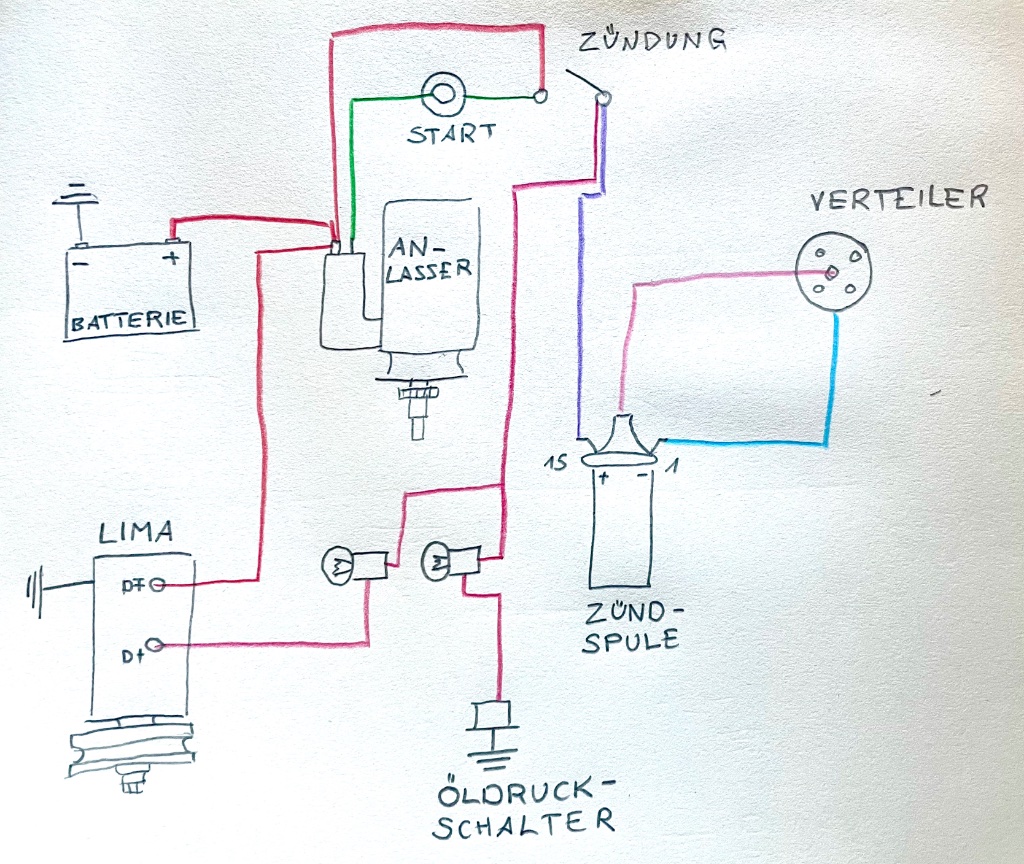 ZÜNDUNG
START
VERTEILER
AN-
LASSER
- +
BATTERIE
15 1
+ -
LIMA
DF
D+
ZÜND-
SPULE
ÖLDRUCK-
SCHALTER